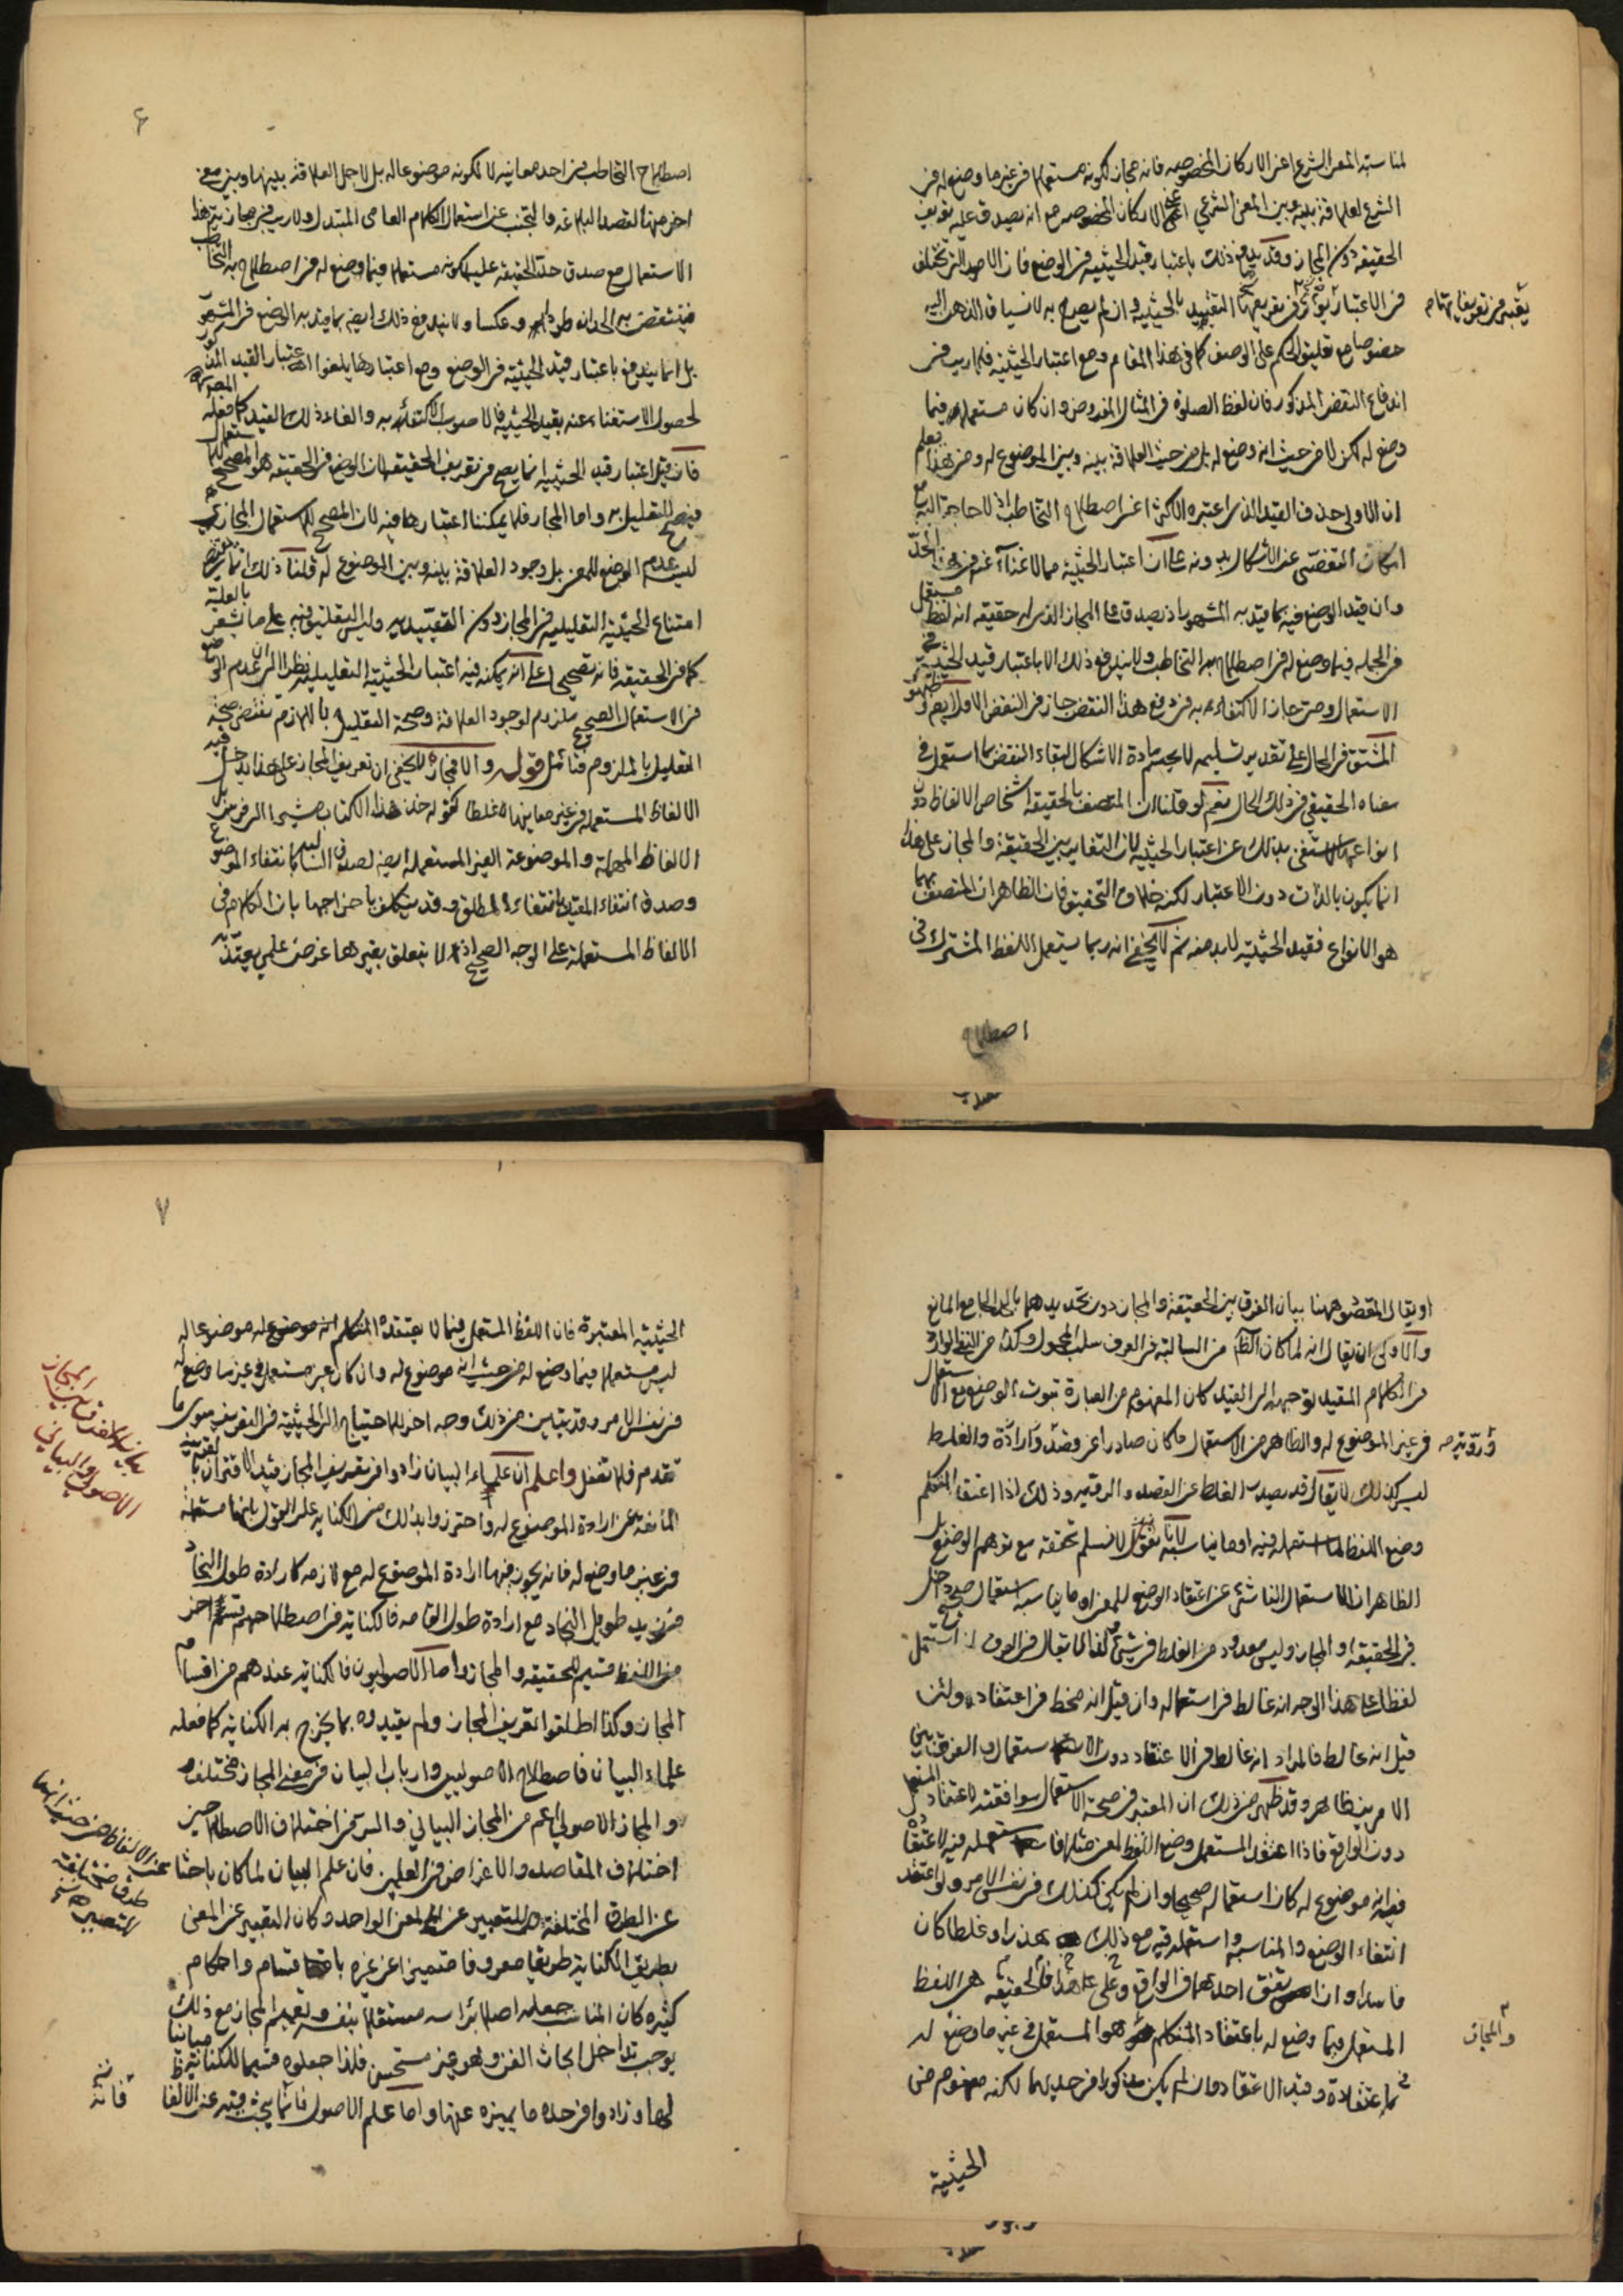 لمناسبته المعنى الشرعي اعني الاركان المخصوصه فانه مجاز لكونه مستعملا في غير ما وضع له في
الشرع لعلاقة بينه وبين المعنى الشرعي اعني الاركان المخصوصه مع انه يصدق عليه تعريف
الحقيقة دون المجاز وقد يدفع ذلك باعتبار قيد الحيثيه في الوضع فان الامور التي تختلف
في الاعتبار يؤخذ في تعريفها التقييد بالحيثيه وان لم يصرح به لانسياق الذهن اليه
يعتبر في تعريفاتها
خصوصا مع تعليق الحكم على الوصف كما في هذا المقام ومع اعتبار الحيثية فلا ريب في
اندفاع النقض المذكور فان لفظ الصلوة في المثال المفروض وان كان مستعملا فيما
وضع له لكن لا من حيث انه وضع له بل من حيث العلاقة بينه وبين الموضوع له ومن هذا يعلم
ان الاولى حذف القيد الذي اعتبره الاكثر اعني اصطلاح التخاطب اذ لا حاجة اليه مع
امكان التفصى عن الاشكال بدونه على ان اعتبار الحيثية مما لا غناء عنه في هذا الحد
وان قيد الوضع فيه بما قيد به المشهور اذ يصدق على المجاز الذي له حقيقه انه لفظ مستعمل
في الجمله فيما وضع له في اصطلاح به التخاطب ولا يندفع ذلك الا باعتبار قيد الحيثية في
الاستعمال وحيث جاز الاكتفاء به في دفع هذا النقض جاز في النقض الاول ايضا وظهور
المشتق في الحال على تقدير تسليمه لا يحسم مادة الاشكال لبقاء النقض بما استعمل في
معناه الحقيقي في ذلك الحال نعم لو قلنا ان المتصف بالحقيقة اشخاص الالفاظ دون
انواعها استغنى بذلك عن اعتبار الحيثية لان التغاير بين الحقيقة والمجاز على هذا
انما يكون بالذات دون الاعتبار لكنه خلاف التحقيق فان الظاهر ان المتصف بهما
هو الانواع فقيد الحيثية لا بد منه ثم لا يخفى انه ربما يستعمل اللفظ المشترك في
اصطلاح
۶
اصطلاح التخاطب في احد معانيه لا لكونه موضوعا له بل لاجل العلاقة بينها وبين معنى
اخر منها لقصد البلاغه والتجنب عن استعمال الكلام العامى المبتذل ولا ريب في مجازية هذا
الاستعمال مع صدق حد الحقيقه عليه لكونه مستعملا فيما وضع له في اصطلاح به التخاطب
فينتقض به الحدان طردا وعكسا ولا يندفع ذلك ايضا بما قيد به الوضع في المشهور
بل انما يندفع باعتبار قيد الحيثيه في الوضع ومع اعتبارها يلغوا اعتبار القيد المذكور
لحصول الاستغناء عنه بقيد الحيثية فالاصوب الاكتفاء به والغاء ذلك القيد كما فعله المصنف
فان قيل اعتبار قيد الحيثيه انما يصح في تعريف الحقيقه لان الوضع في الحقيقه هو المصحح للاستعمال
فيصح التعليل به واما المجاز فلا يمكننا اعتبارها فيه لان المصحح للاستعمال المجازي
ليس عدم الوضع للمعنى بل وجود العلاقة بينه وبين الموضوع له قلنا ذلك انما يقتضى
امتناع الحيثية التعليليه في المجاز دون التقييديه وليس التعليق فيه على ما يشعر بالعليه
كما في الحقيقه فانه تصحيح على انه يمكنه فيه اعتبار الحيثية التعليليه نظرا الى ان عدم الوضع
في الاستعمال الصحيح ملزوم لوجود العلاقة وصحة التعليل باللازم تقتضى صحة
التعليل بالملزوم فتامل قوله والا فمجاز لا يخفى ان تعريف المجاز على هذا يدخل فيه
الالفاظ المستعمله في غير معانيها غلطا كقوله خذ هذا الكتاب مشيرا الى فرس بل
الالفاظ المهملة والموضوعة الغير المستعمله ايضا لصدق السالبه بانتفاء الموضوع
وصدق انتفاء المقيد بانتفاء المطلق وقد يتكلف باخراجها بان الكلام في
الالفاظ المستعملة على الوجه الصحيح اذ لا يتعلق بغيرها غرض علمي يعتد به
او يقال المقصود ههنا بيان الفرق بين الحقيقة والمجاز دون تحديدهما بالحد الجامع المانع
والاولى ان يقال انه لما كان الظاهر من السالبة في العرف سلب المحمول وكذا من النفي الوارد
في الكلام المقيد توجهه الى القيد كان المفهوم من العبارة ثبوت الوضع مع الاستعمال
في غير الموضوع له والظاهر من الاستعمال ما كان صادرا عن قصد وارادة والغلط
وروية صه
ليس كذلك لا يقال قد يصدر الغلط عن القصد والرويه وذلك اذا اعتقد المتكلم
وضع اللفظ لما استعمله فيه او ما يناسبه لانا نقول لا نسلم تحققه مع توهم الوضع بل
الظاهر ان الاستعمال الناشئ عن اعتقاد الوضع للمعنى او ما يناسبه استعمال صحيح داخل
في الحقيقه او المجاز وليس معدود من الغلط في شئ كما يقال في العرف لمن استعمل
لفظا على هذا الوجه انه غالط في استعماله وان قيل انه مخط في اعتقاده ولئن
قيل انه غالط فالمراد انه غالط في الاعتقاد دون الاستعمال والفرق بين
الامرين ظاهر وقد ظهر من ذلك ان المعتبر في صحة الاستعمال موافقته لاعتقاد المستعمل
دون الواقع فاذا اعتقد المستعمل وضع اللفظ لمعنى مثلا فاستعمله فيه لاعتقاده
فيه انه موضوع له كان استعماله صحيحا وان لم يكن كذلك في نفس الامر ولو اعتقد
انتفاء الوضع والمناسبة واستعمله فيه مع ذلك هذرا وغلطا كان
فاسدا وان اتفق احدهما في الواقع وعلى هذا فالحقيقه هى اللفظ
المستعمل فيما وضع له باعتقاد المتكلم هو المستعمل في غير ما وضع له
والمجاز
في اعتقاده وقيد الاعتقاد وان لم يكن مذكورا في حديهما لكنه مفهوم من
الحيثية
۷
الحيثيه المعتبرة فان اللفظ المستعمل فيما لا يعتقده المتكلم انه موضوع له موضوعا له
ليس مستعملا فيما وضع له من حيث انه موضوع له وان كان غير مستعمل في غير ما وضع له
في نفس الامر وقد يتبين من ذلك وجه اخر للاحتياج الى الحيثية في التعريف سوى ما
تقدم فلا تغفل واعلم ان علماء البيان زادوا في تعريف المجاز قيد الاقتران بالقرينة
المانعة عن ارادة الموضوع له واحترزوا بذلك من الكنايه على القول بانها مستعملة
بيان الفرق بين المجاز
الاصولي والبياني
في غير ما وضع له فانه يجوز فيها ارادة الموضوع له مع لازمه كارادة طول النجاد
من زيد طويل النجاد مع ارادة طول القامه فالكناية في اصطلاحهم قسم اخر
من اللفظ قسيم للحقيقه والمجاز واما الاصوليون فالكنايه عندهم من اقسام
المجاز وكذا اطلقوا تعريف المجاز ولم يقيدوه بما يخرج به الكنايه كما فعله
علماء البيان فاصطلاح الاصوليين وارباب البيان في معنى المجاز مختلف
والمجاز الاصولي اعم من المجاز البياني والسر في اختلاف الاصطلاحين
اختلاف المقاصد والاغراض في العلمين فان علم البيان لما كان باحثا
عن الالفاظ من حيث انها
طرق مختلفة
للتعبير
عن الطرق المختلفة للتعبير عن المعنى الواحد وكان التعبير عن المعنى
بطريق الكناية طريقا معروفا متميزا عن غيره باقسام واحكام
كثيره كان المناسب جعله اصلا براسه مستقلا بنفسه وتعميم المجاز مع ذلك
يوجب تداخل ابحاث الفن وهو غير مستحسن فلذا جعلوه قسيما للكناية مباينا
لها وزادوا في حده ما يميزه عنها واما علم الاصول فانما يبحث فيه عن الالفاظ
فانه